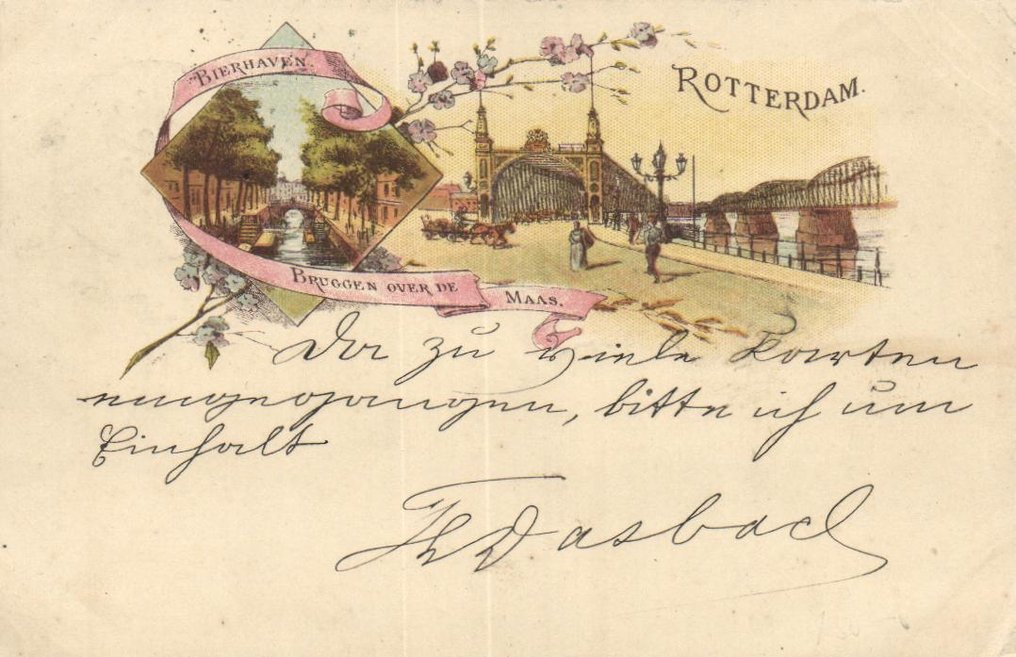 BIERHAVEN.
ROTTERDAM.
BRUGGEN OVER DE MAAS.
Da zu viele Karten
eingegangen, bitte ich um
Einhalt
Th Dasbach